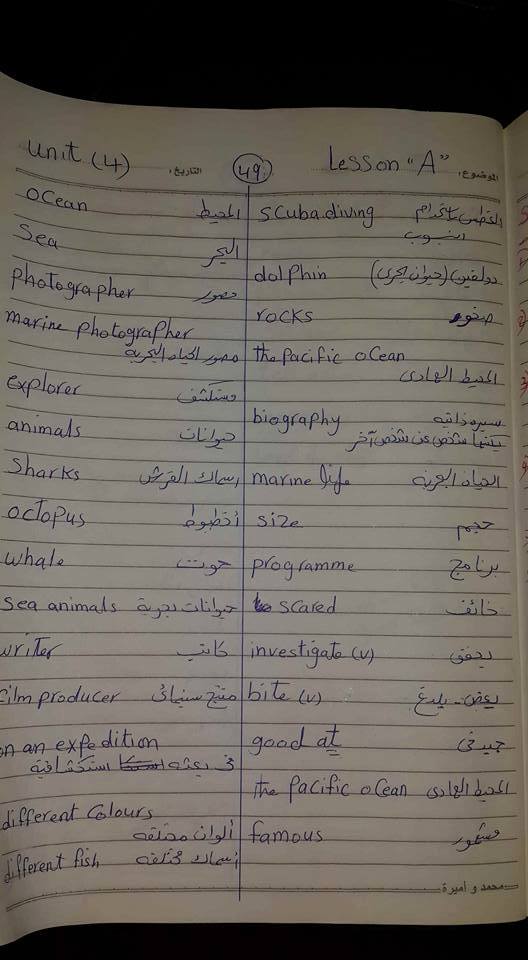 Unit (4) التاريخ: 49 Lesson "A" الموضوع:
ocean المحيط
Sea البحر
photographer مصور
marine photographer
مصور الحياه البحرية
explorer مستكشف
animals حيوانات
Sharks اسماك القرش
octopus أخطبوط
whale حوت
sea animals حيوانات بحرية
writer كاتب
film producer منتج سنيمائى
on an expedition
فى بعثه استكشافية
different Colours
ألوان مختلفه
different fish اسماك مختلفه
scuba diving الغطس باستخدام
انبوب
dolphin دولفين (حيوان بحرى)
rocks صخور
the pacific ocean
المحيط الهادى
biography سيره ذاتيه
يكتبها شخص عن شخص آخر
marine life الحياه البحريه
size حجم
programme برنامج
scared خائف
investigate (v) يحقق
bite (v) يعض - يلدغ
good at جيد فى
the pacific ocean المحيط الهادى
famous مشهور
محمد و اميرة